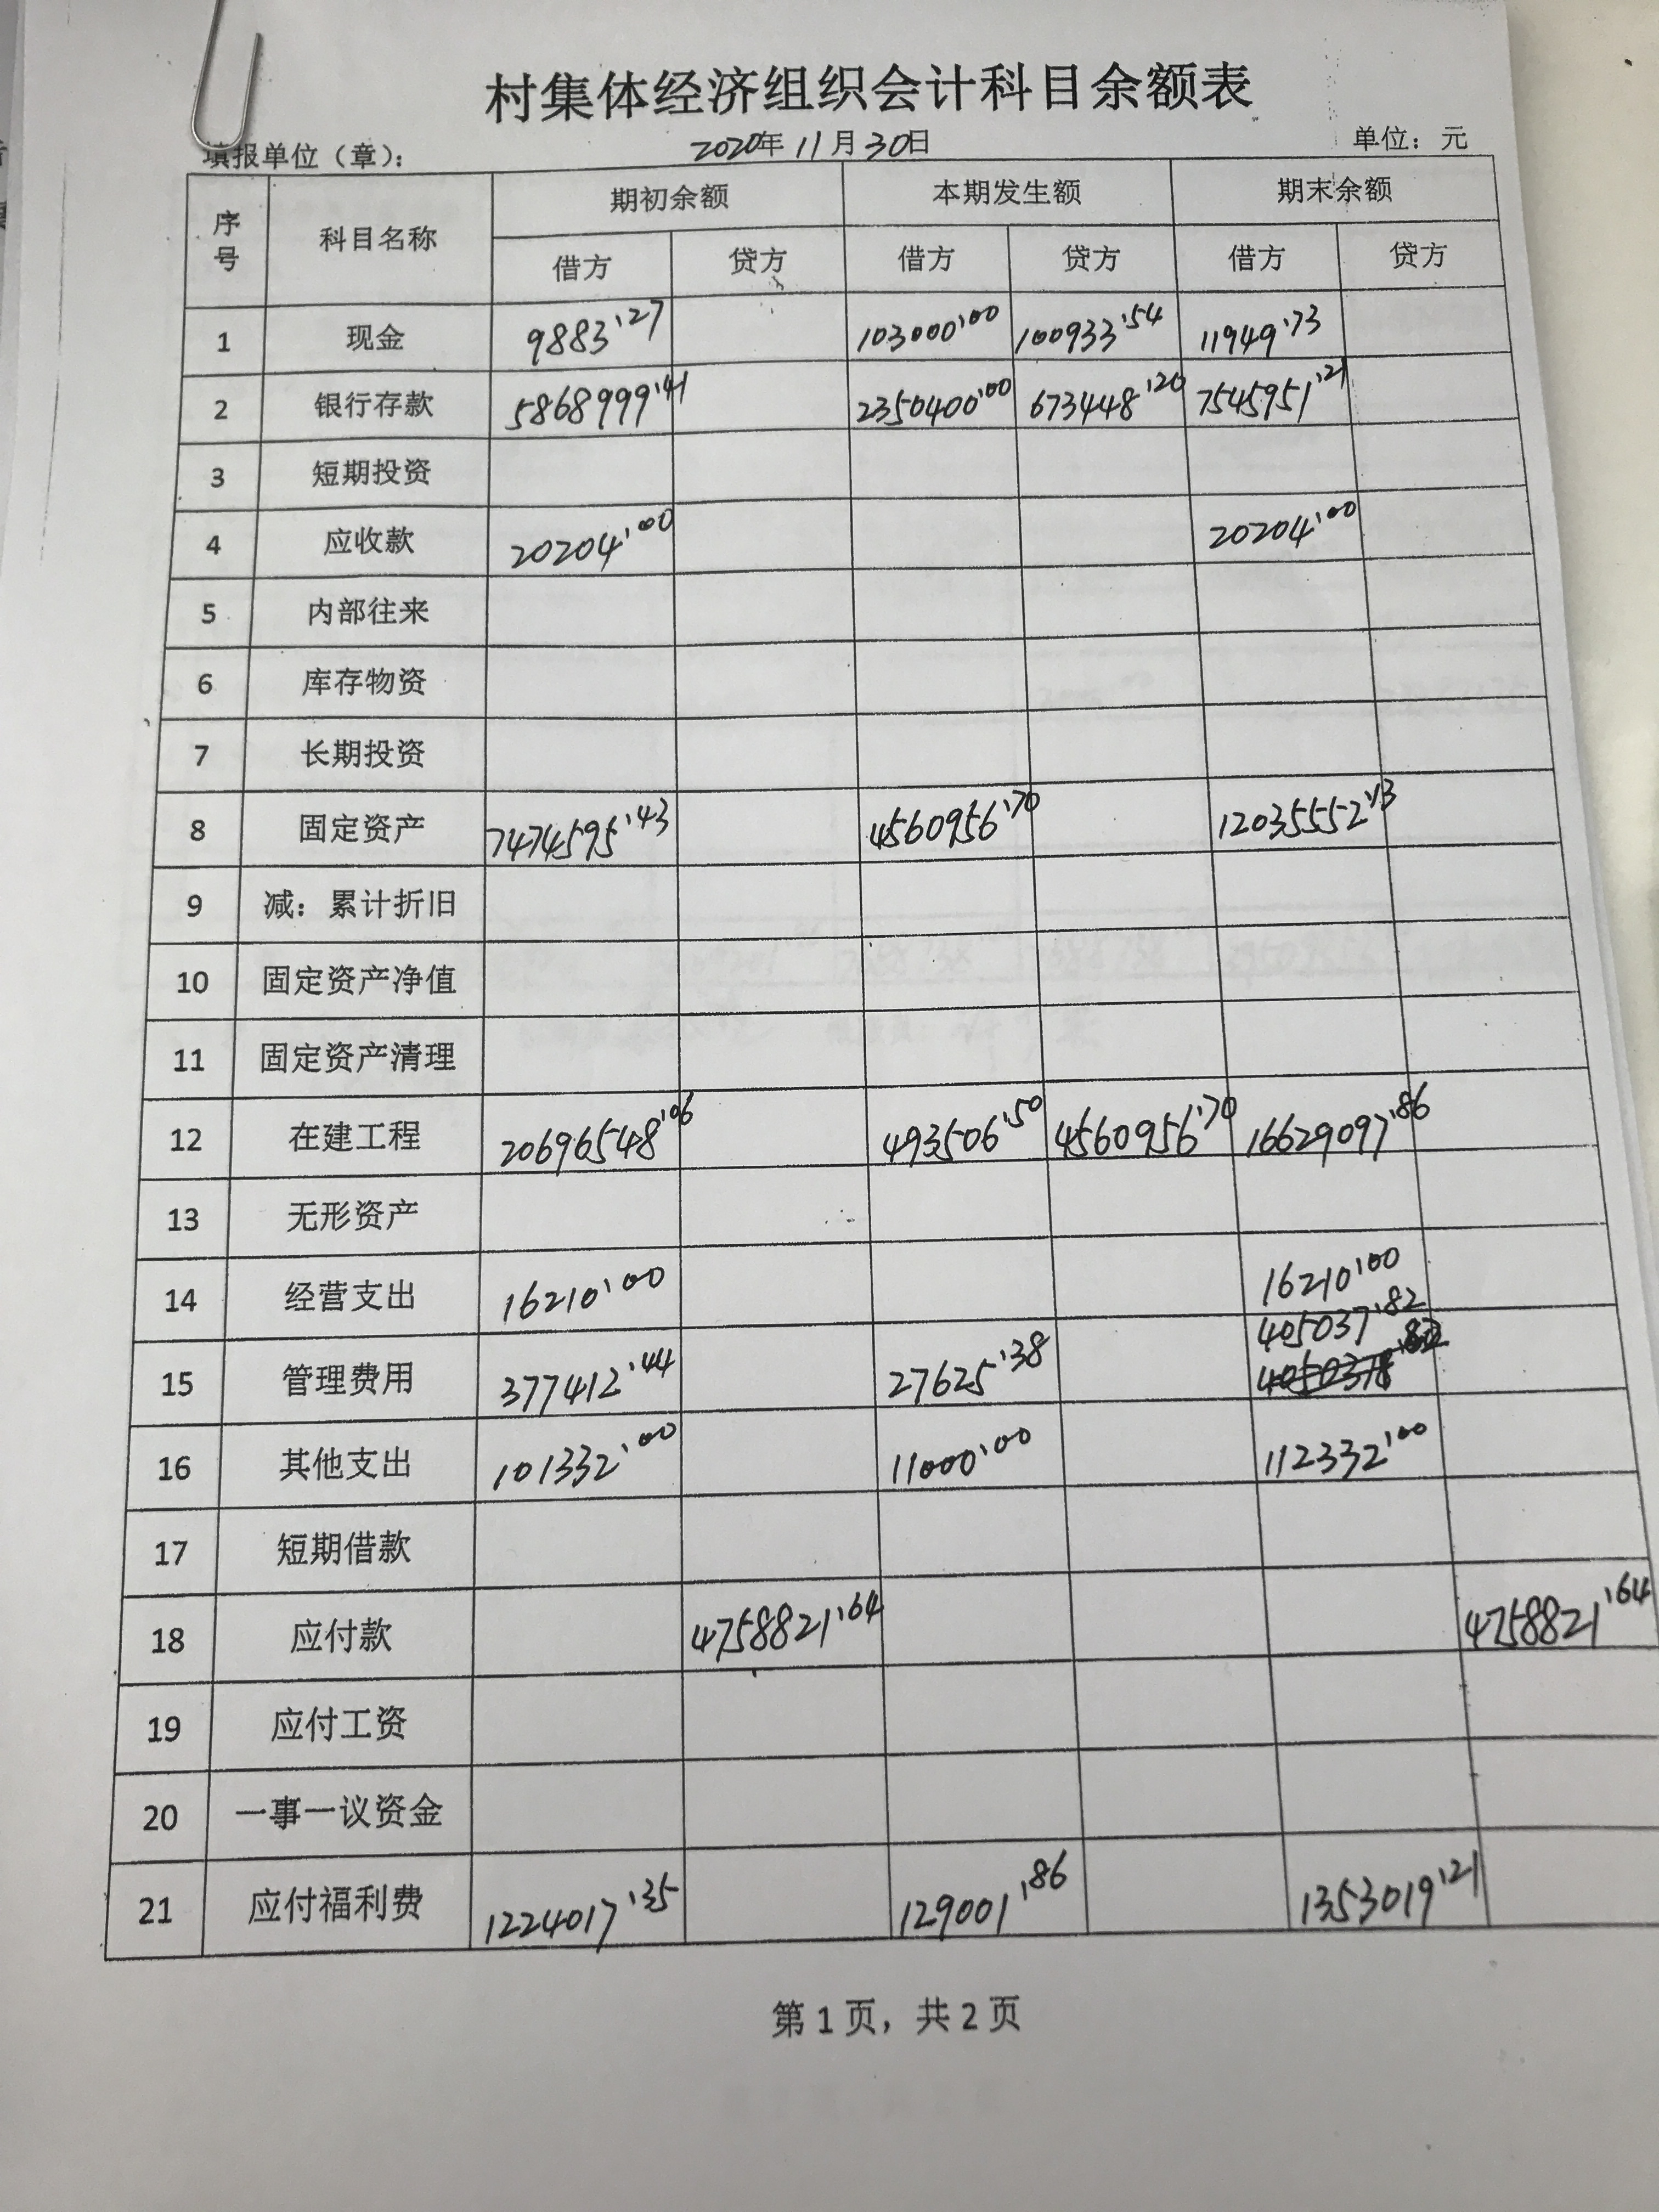 村集体经济组织会计科目余额表
填报单位（章）： 2020年 11月 30日 单位：元
序号 科目名称 期初余额 本期发生额 期末余额
借方 贷方 借方 贷方 借方 贷方
1 现金 9883.27 103000.00 100933.54 11949.73
2 银行存款 5868999.41 2350400.00 673448.20 7545951.21
3 短期投资
4 应收款 20204.00 20204.00
5 内部往来
6 库存物资
7 长期投资
8 固定资产 7474595.43 4560956.70 12035552.13
9 减：累计折旧
10 固定资产净值
11 固定资产清理
12 在建工程 20696548.06 493506.50 4560956.70 16629097.86
13 无形资产
14 经营支出 16210.00 16210.00
15 管理费用 377412.44 27625.38 405037.82
16 其他支出 101332.00 11000.00 112332.00
17 短期借款
18 应付款 4758821.64 4758821.64
19 应付工资
20 一事一议资金
21 应付福利费 1224017.35 129001.86 1353019.21
第 1 页，共 2 页